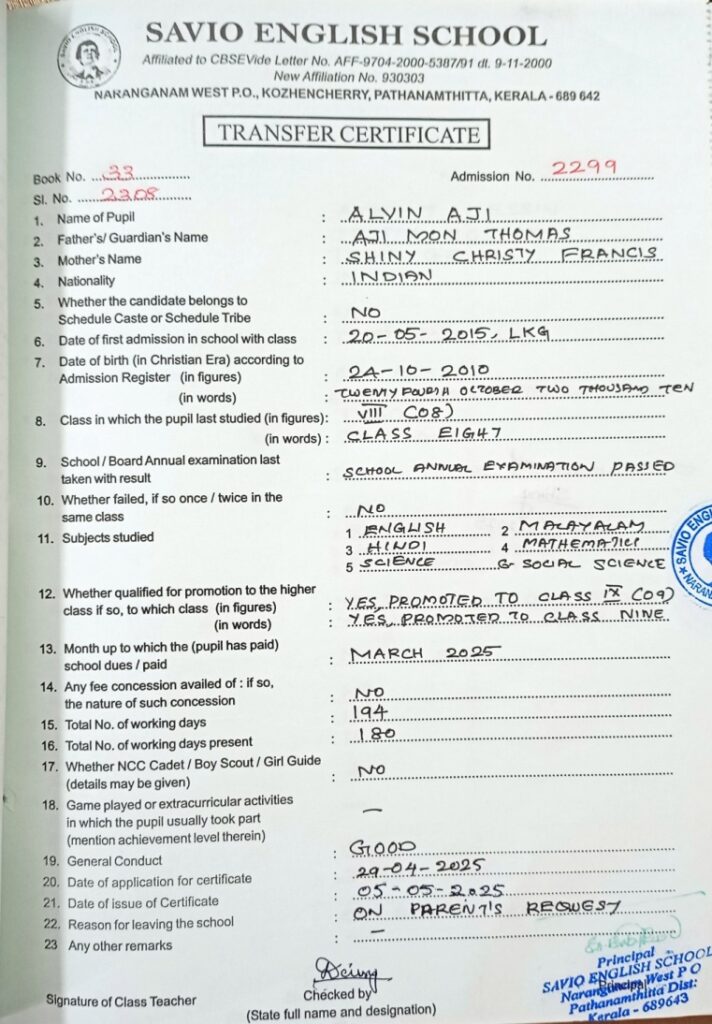 SAVIO ENGLISH SCHOOL
SAVIO ENGLISH SCHOOL
Affiliated to CBSEVide Letter No. AFF-9704-2000-5387/91 dt. 9-11-2000
New Affiliation No. 930303
NARANGANAM WEST P.O., KOZHENCHERRY, PATHANAMTHITTA, KERALA - 689 642
TRANSFER CERTIFICATE
Book No. 33
Admission No. 2299
Sl. No. 2308
1. Name of Pupil : ALVIN AJI
2. Father's/ Guardian's Name : AJI MON THOMAS
3. Mother's Name : SHINY CHRISTY FRANCIS
4. Nationality : INDIAN
5. Whether the candidate belongs to
Schedule Caste or Schedule Tribe : NO
6. Date of first admission in school with class : 20-05-2015, LKG
7. Date of birth (in Christian Era) according to
Admission Register (in figures) : 24-10-2010
(in words) : TWENTY FOURTH OCTOBER TWO THOUSAND TEN
8. Class in which the pupil last studied (in figures): VIII (08)
(in words) : CLASS EIGHT
9. School / Board Annual examination last
taken with result : SCHOOL ANNUAL EXAMINATION PASSED
10. Whether failed, if so once / twice in the
same class : NO
11. Subjects studied : 1 ENGLISH 2 MALAYALAM
3 HINDI 4 MATHEMATICS
5 SCIENCE 6 SOCIAL SCIENCE
12. Whether qualified for promotion to the higher
class if so, to which class (in figures) : YES, PROMOTED TO CLASS IX (09)
(in words) : YES, PROMOTED TO CLASS NINE
13. Month up to which the (pupil has paid)
school dues / paid : MARCH 2025
14. Any fee concession availed of : if so,
the nature of such concession : NO
15. Total No. of working days : 194
16. Total No. of working days present : 180
17. Whether NCC Cadet / Boy Scout / Girl Guide
(details may be given) : NO
18. Game played or extracurricular activities
in which the pupil usually took part : —
(mention achievement level therein)
19. General Conduct : GOOD
20. Date of application for certificate : 29-04-2025
21. Date of issue of Certificate : 05-05-2025
22. Reason for leaving the school : ON PARENT'S REQUEST
23 Any other remarks : —
Signature of Class Teacher
Checked by
(State full name and designation)
Principal
Principal
SAVIO ENGLISH SCHOOL
Naranganam West P O
Pathanamthitta Dist:
Kerala - 689643
SAVIO ENG